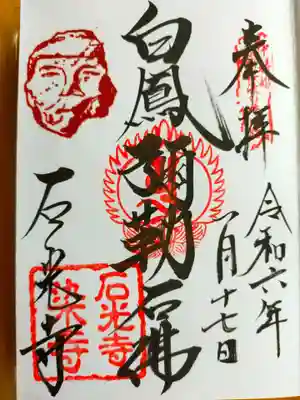 奉拝
令和六年
一月十七日
白鳳
彌勒石佛
石光寺
石光寺
染寺